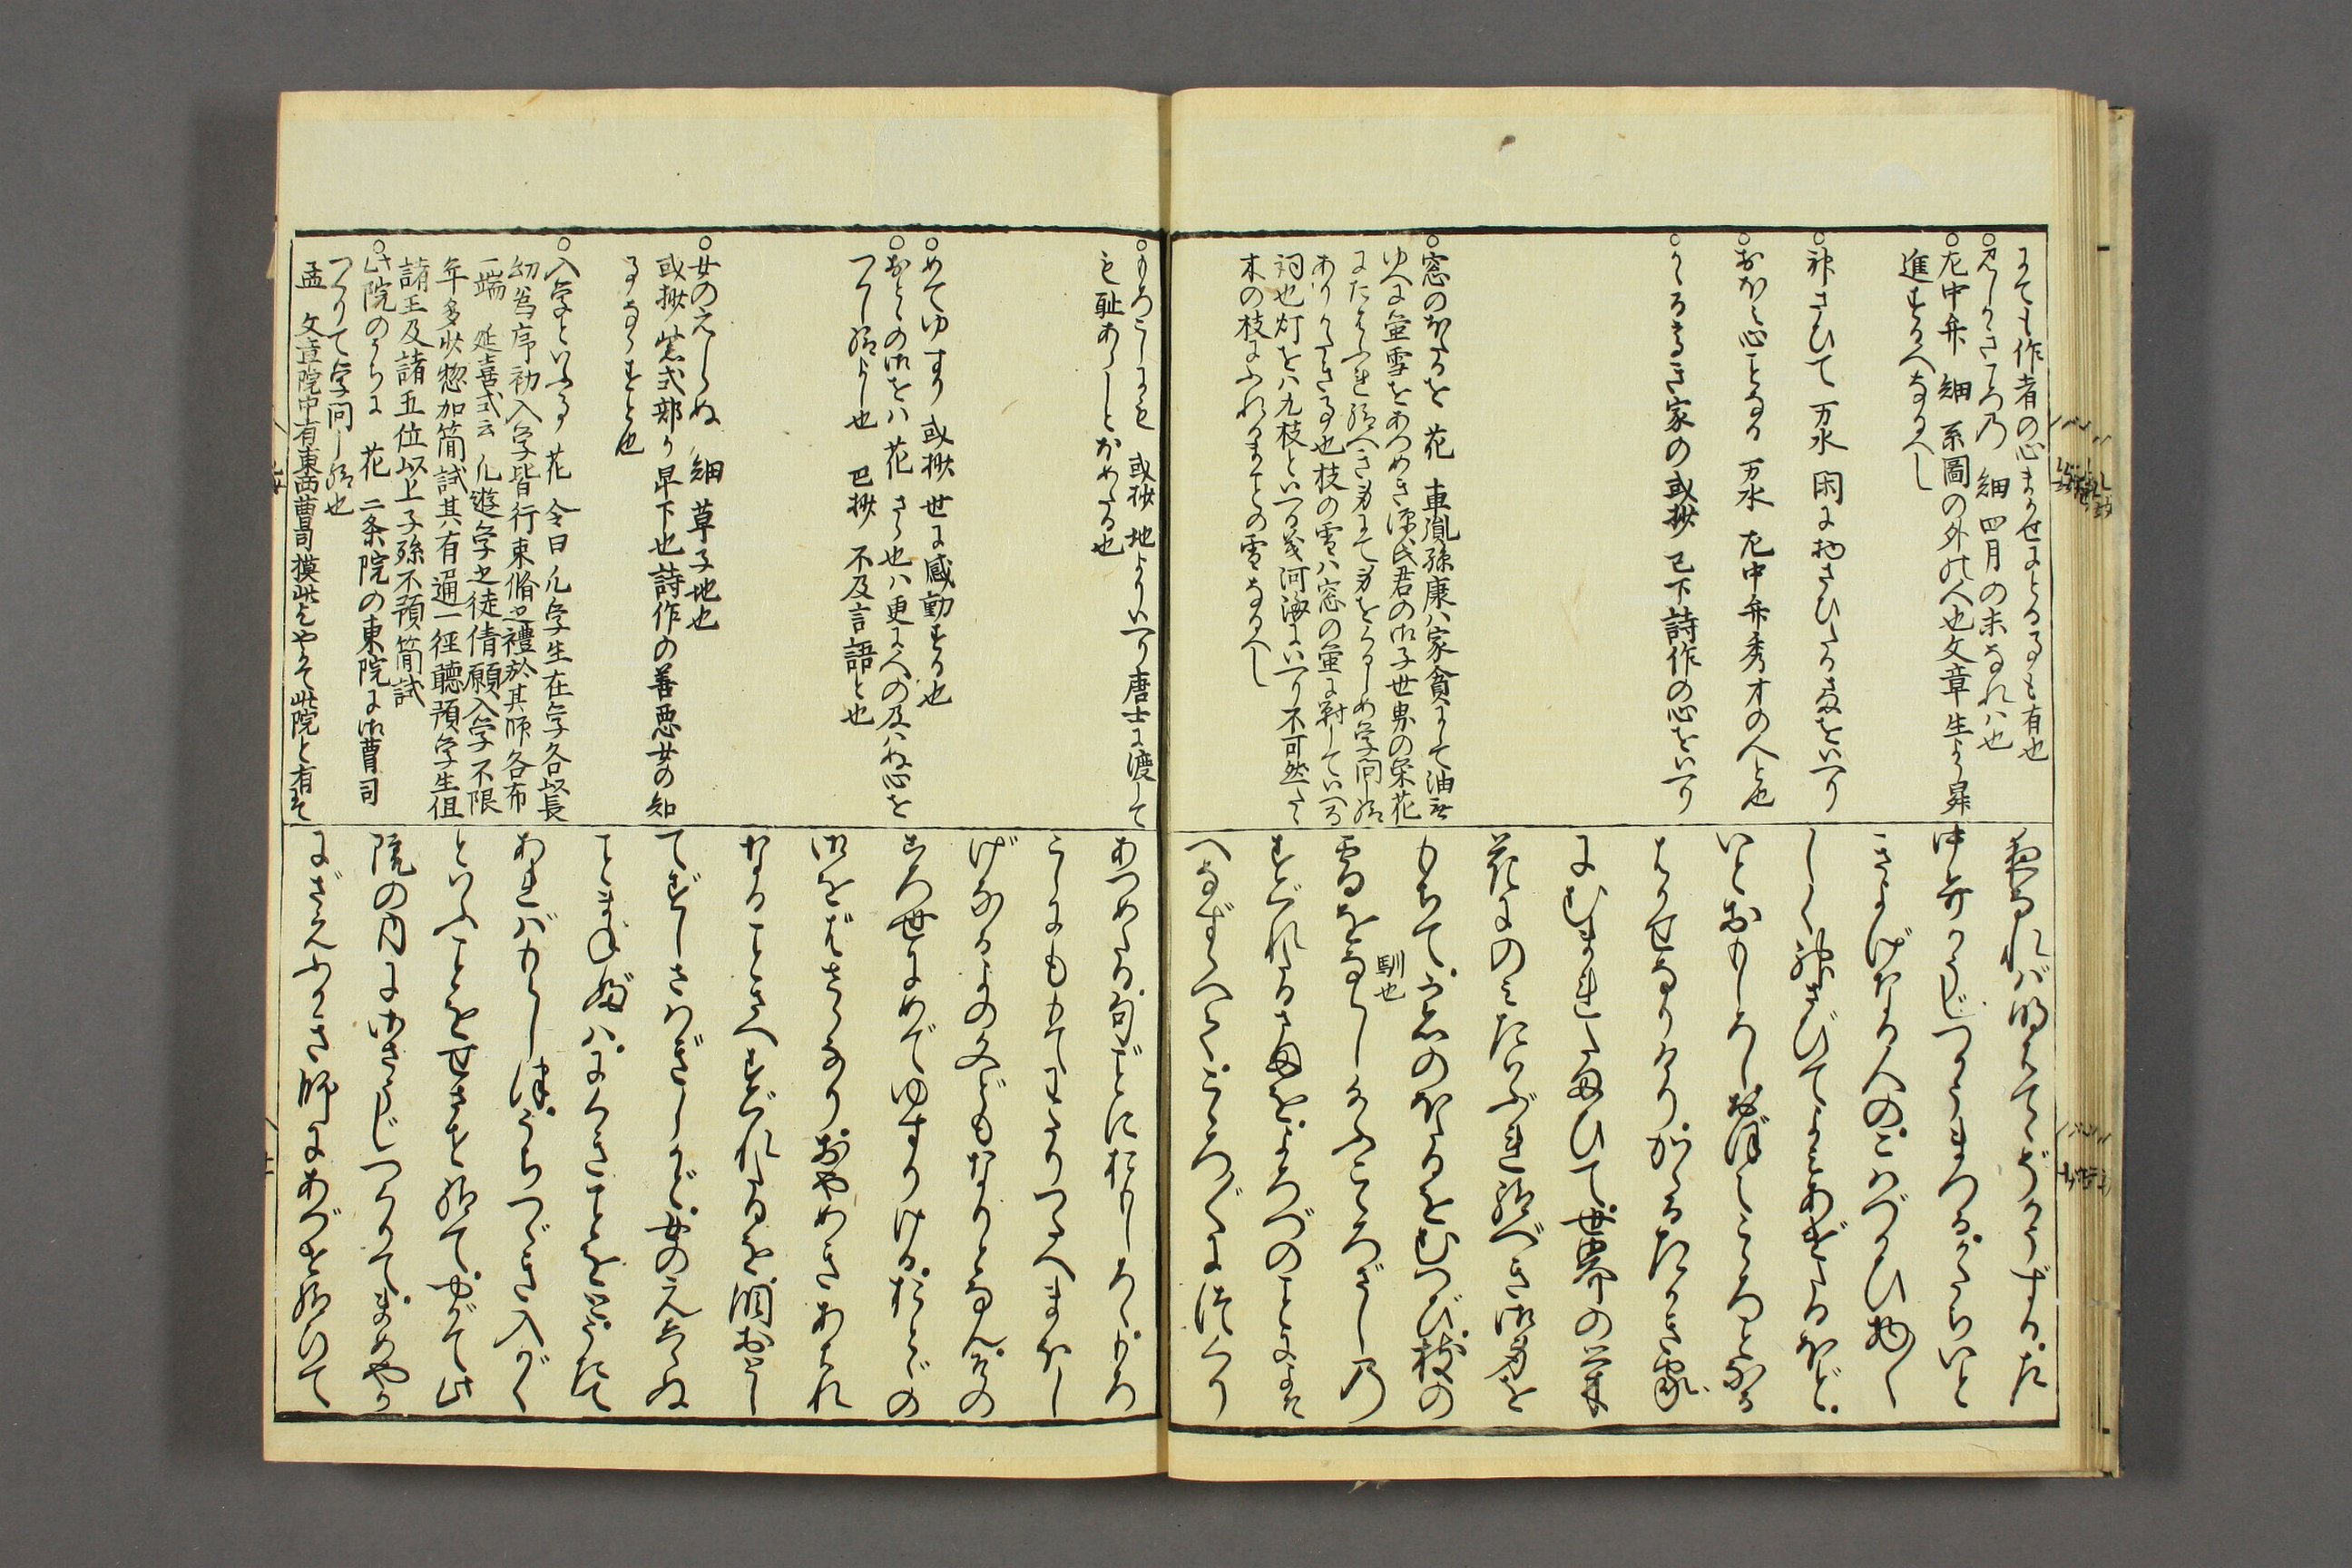 まても作者の心まかせによる事も有也
○みしかきころの 細 四月の末なれは也
○左中弁 細 系圖の外の人也文章生より昇
進するへなるへし
○神さひて 万水 閑に物さひたる声をいへり
○おほえ心ことなる 万水 左中弁秀才の人と也
○かゝるたかき家の 或抄 已下詩作の心をいへり
○窓のほたるを 花 車胤孫康ハ家貧にて油なき
ゆへに螢雪をあつめき源氏君の御子世界の栄花
にたはふれ給へき身にて身をくるしめ学問し給
ありかたき事也枝の雪ハ窓の螢に対していへる
詞也灯をハ九枝といへる義河海にいへり不可然たゝ
木の枝にふれるまことの雪なるへし
夜なれば明はてゝぞかうずる。左
中弁かうじつかうまつる。かたちいと
きよげなる人の。こはづかひ物〳〵
しく神さびてよみあげたるほど。
いとおもしろしおぼえこゝろことなる
はかせなりけり。かゝるたかき家
にむまれ給ひて。世界の栄
花にのみたはぶれ給べき御身を
もちて。窓のほたるをむつび。枝の
馴也
雪をならし給ふこゝろざしの
すぐれたるさまを。よろづのことによそ
へなずらへて。こゝろ〴〵につくり
○もろこしにも 或抄 地よりいへり唐土に渡して
も耻あらしとほめたる也
○めてゆすり 或抄 世に感動する也
○おとゝの御をハ 花 さら也ハ更に人の及ハぬ心を
つくし給よし也 已抄 不及言語と也
○女のえしらぬ 細 草子地也
或抄 紫式部か卑下也詩作の善悪女の知
事ならすと也
○入学といふ事 花 令曰凡学生在学各以長
幼為序初入学皆行束脩之禮於其師各布
一端 延喜式云 凡遊学之徒情願入学不限
年多少惣加簡試其有通一經聴預学生但
諸王及諸五位以上子孫不預簡試
○此院のうちに 花 二条院の東院に御曹司
つくりて学問し給也
孟 文章院中有東西曹司摸此也やかて此院と有そ
あつめたる句ごとにおもしろく。もろ
こしにももてわたりつたへまほし
げなるよの文どもなりとなん。その
ころ世にめでゆすりける。おとゞの
御をばさらなり。おやめきあはれ
なることさへすぐれたるを。涙おとし
てずじさはぎしかど。女のえしらぬ
ことまねぶハ。にくきことをと。うたて
あればもらしつ。うちつゞき入がく
といふことをせさせ給て。やがて此
院の内に御ざうしつくりて。まめやか
にざえふかき師にあづけ給ひて